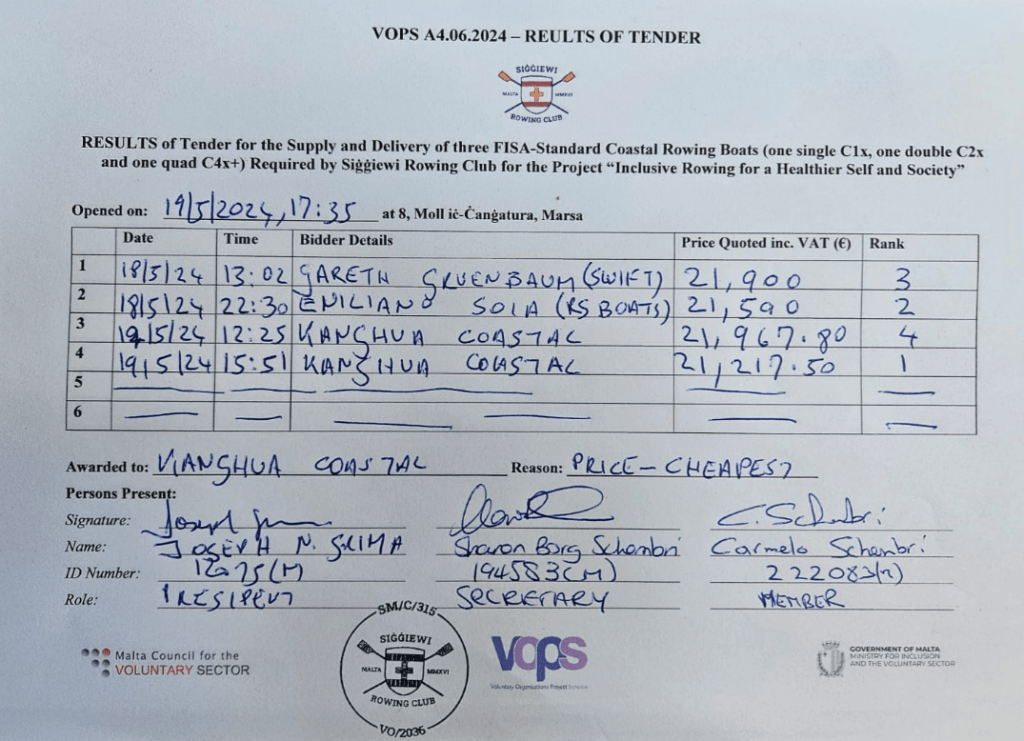 VOPS A4.06.2024 – REULTS OF TENDER
SIĠĠIEWI
MALTA MMXVI
ROWING CLUB
RESULTS of Tender for the Supply and Delivery of three FISA-Standard Coastal Rowing Boats (one single C1x, one double C2x
and one quad C4x+) Required by Siġġiewi Rowing Club for the Project “Inclusive Rowing for a Healthier Self and Society”
Opened on: 19/5/2024, 17:35 at 8, Moll iċ-Ċangatura, Marsa
Date Time Bidder Details Price Quoted inc. VAT (€) Rank
1 18/5/24 13:02 GARETH GRUENBAUM (SWIFT) 21,900 3
2 18/5/24 22:30 EMILIANO SOLA (RS BOATS) 21,590 2
3 19/5/24 12:25 KANGHUA COASTAL 21,967.80 4
4 19/5/24 15:51 KANGHUA COASTAL 21,217.50 1
5
6
Awarded to: KANGHUA COASTAL Reason: PRICE – CHEAPEST
Persons Present:
Signature: Joseph C. Schembri
Name: JOSEPH N. GRIMA Sharon Borg Schembri Carmelo Schembri
ID Number: 194583(M)
Role: PRESIDENT SECRETARY MEMBER
SM/C/315
SIĠĠIEWI
MALTA MMXVI
ROWING CLUB
VO/2036
Malta Council for the
VOLUNTARY SECTOR
vops
Voluntary Organisations Project Scheme
GOVERNMENT OF MALTA
MINISTRY FOR INCLUSION
AND THE VOLUNTARY SECTOR